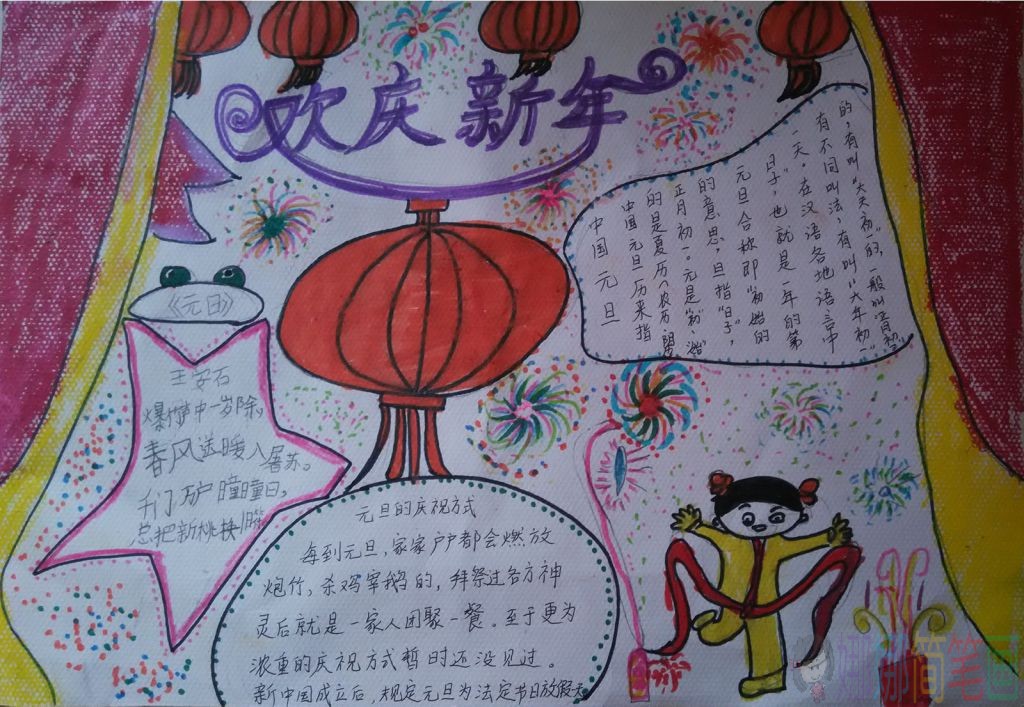 欢庆新年
中国元旦
中国元旦历来指
的是夏历(农历、阴历)
正月初一。元是"初"、"始"
的意思,旦指"日子",
元旦合称即"初始的
日子",也就是一年的第
一天。在汉语各地语言中
有不同叫法,有叫"大年初一"
的,有叫"大天初"的,一般叫
《元日》
王安石
爆竹声中一岁除,
春风送暖入屠苏。
千门万户瞳瞳日,
总把新桃换旧符
元旦的庆祝方式
每到元旦,家家户户都会燃放
炮竹,杀鸡宰鹅的,拜祭过各方神
灵后就是一家人团聚一餐。至于更为
浓重的庆祝方式暂时还没见过。
新中国成立后,规定元旦为法定节日放假
娜娜简笔画